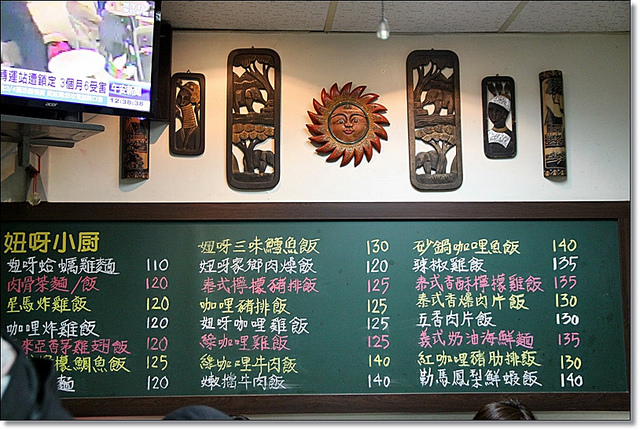 轉運站遭鎖定 3個月6受害
午安新聞
12:38:38
acer
妞呀小厨
妞呀蛤蠣雞麵 110
肉骨茶麵/飯 120
星馬炸雞飯 120
咖哩炸雞飯 120
來亞香茅雞翅飯 120
檬鯛魚飯 125
麵 120
妞呀三味鱈魚飯 130
妞呀家鄉肉燥飯 120
泰式檸檬豬排飯 125
咖哩豬排飯 125
妞呀咖哩雞飯 125
綠咖哩雞飯 125
綠咖哩牛肉飯 140
牛肉飯 140
砂鍋咖哩魚飯 140
辣椒雞飯 135
泰式香酥檸檬雞飯 135
泰式香燻肉片飯 130
五香肉片飯 130
義式奶油海鮮麵 135
紅咖哩豬肋排飯 130
勒馬鳳梨鮮蝦飯 140